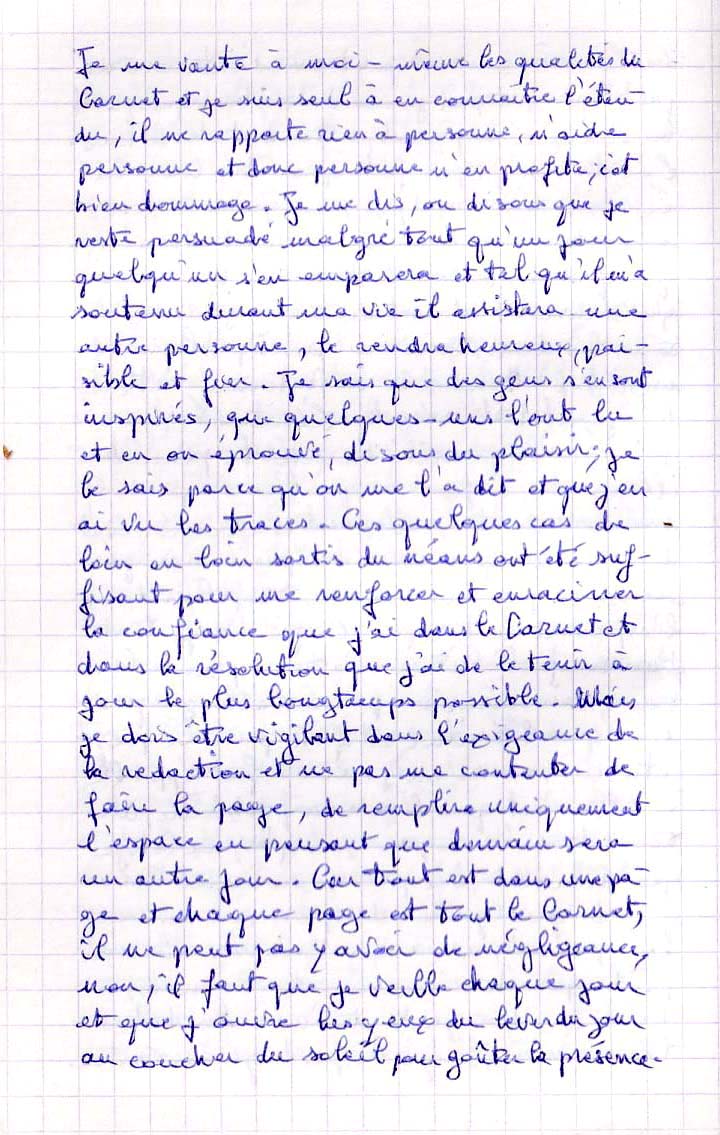 Je me vante à moi-même les qualités du
Carnet et je suis seul à en connaître l'éten
du, il ne rapporte rien à personne, n'aide
personne et donc personne n'en profite; c'est
bien dommage. Je me dis, ou disons que je
reste persuadé malgré tout qu'un jour
quelqu'un s'en emparera et tel qu'il m'a
soutenu durant ma vie il assistera une
autre personne, le rendra heureux, pai-
sible et fier. Je sais que des gens s'en sont
inspirés, que quelques-uns l'ont lu
et en on éprouvé, disons du plaisir; je
le sais parce qu'on me l'a dit et que j'en
ai vu les traces. Ces quelques cas de
loin en loin sortis du néans ont été suf-
fisant pour me renforcer et enraciner
la confiance que j'ai dans le Carnet et
dans la résolution que j'ai de le tenir à
jour le plus longtemps possible. Mais
je dois être vigilant dans l'exigeance de
la redaction et ne pas me contenter de
faire la page, de remplire uniquement
l'espace en pensant que demain sera
un autre jour. Car tout est dans une pa-
ge et chaque page est tout le Carnet,
il ne peut pas y avoir de négligeance,
non, il faut que je veille chaque jour
et que j'ouvre les yeux du lever du jour
au coucher du soleil pour goûter la présence.